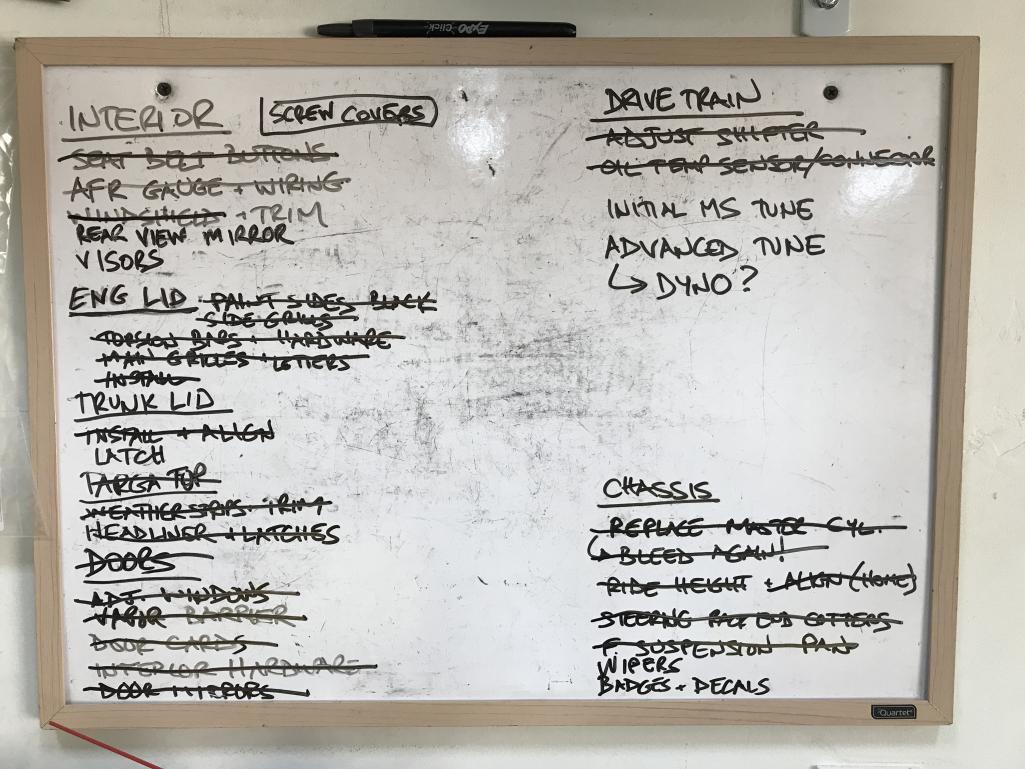 EXPO Click
INTERIOR
SCREW COVERS
SEAT BELT BUTTONS
AFR GAUGE + WIRING
WINDSHIELD + TRIM
REAR VIEW MIRROR
VISORS
ENG LID PAINT SIDES BLACK
SIDE GRILLS
TORSION BARS + HARDWARE
MAIN GRILLES + LETTERS
INSTALL
TRUNK LID
INSTALL + ALIGN
LATCH
TARGA TOP
WEATHERSTRIPS + TRIM
HEADLINER + LATCHES
DOORS
ADJ. WINDOWS
VAPOR BARRIER
DOOR CARDS
INTERIOR HARDWARE
DOOR MIRRORS
DRIVE TRAIN
ADJUST SHIFTER
OIL TEMP SENSOR/CONNECTOR
INITIAL MS TUNE
ADVANCED TUNE
↳ DYNO?
CHASSIS
REPLACE MASTER CYL.
↳ BLEED AGAIN!
RIDE HEIGHT + ALIGN (HOME)
STEERING ROD COTTERS
F SUSPENSION PAN
WIPERS
BADGES + DECALS
Quartet